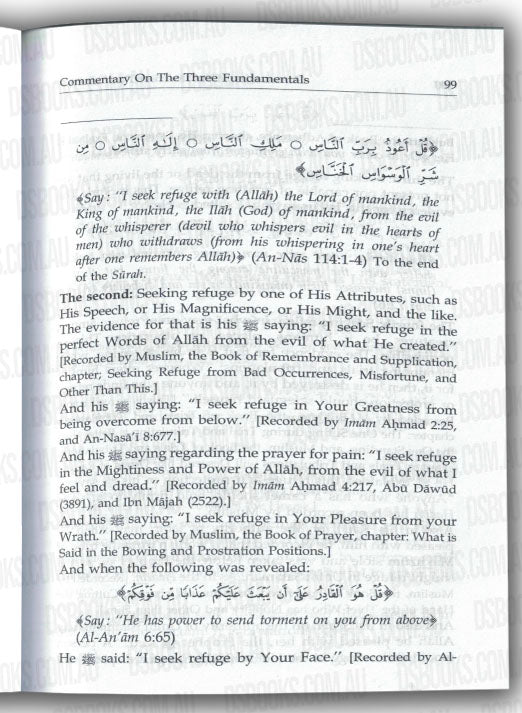 Commentary On The Three Fundamentals 99
﴿قُلْ أَعُوذُ بِرَبِّ ٱلنَّاسِ ۝ مَلِكِ ٱلنَّاسِ ۝ إِلَـٰهِ ٱلنَّاسِ ۝ مِن
شَرِّ ٱلْوَسْوَاسِ ٱلْخَنَّاسِ﴾
﴾Say: "I seek refuge with (Allāh) the Lord of mankind, the
King of mankind, the Ilāh (God) of mankind, from the evil
of the whisperer (devil who whispers evil in the hearts of
men) who withdraws (from his whispering in one's heart
after one remembers Allāh)﴿ (An-Nās 114:1-4) To the end
of the Sūrah.
The second: Seeking refuge by one of His Attributes, such as
His Speech, or His Magnificence, or His Might, and the like.
The evidence for that is his ﷺ saying: "I seek refuge in the
perfect Words of Allāh from the evil of what He created."
[Recorded by Muslim, the Book of Remembrance and Supplication,
chapter; Seeking Refuge from Bad Occurrences, Misfortune, and
Other Than This.]
And his ﷺ saying: "I seek refuge in Your Greatness from
being overcome from below." [Recorded by Imām Aḥmad 2:25,
and An-Nasā'ī 8:677.]
And his ﷺ saying regarding the prayer for pain: "I seek refuge
in the Mightiness and Power of Allāh, from the evil of what I
feel and dread." [Recorded by Imām Aḥmad 4:217, Abū Dāwūd
(3891), and Ibn Mājah (2522).]
And his ﷺ saying: "I seek refuge in Your Pleasure from your
Wrath." [Recorded by Muslim, the Book of Prayer, chapter: What is
Said in the Bowing and Prostration Positions.]
And when the following was revealed:
﴿قُلْ هُوَ ٱلْقَادِرُ عَلَىٰٓ أَن يَبْعَثَ عَلَيْكُمْ عَذَابًا مِّن فَوْقِكُمْ﴾
﴾Say: "He has power to send torment on you from above﴿
(Al-An'ām 6:65)
He ﷺ said: "I seek refuge by Your Face." [Recorded by Al-
DSBOOKS.COM.AU